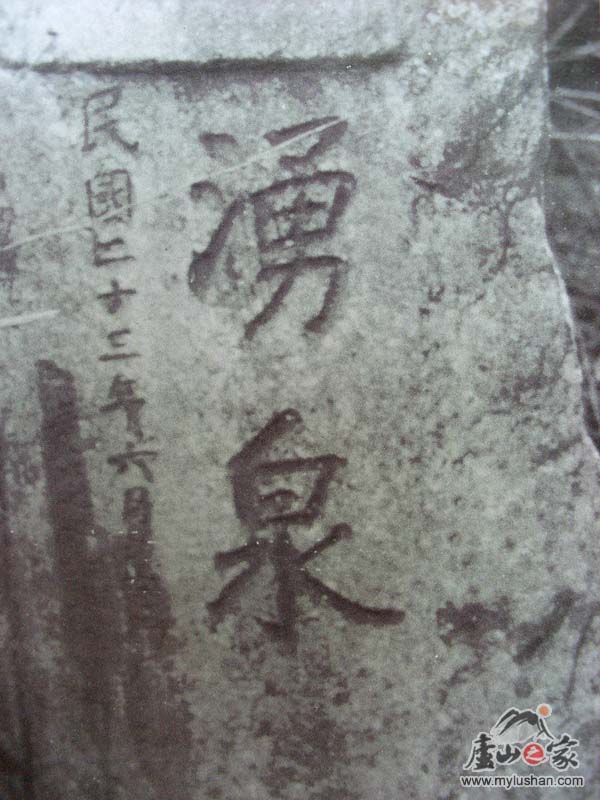 湧泉
民國二十三年六月
庐山之家
www.mylushan.com